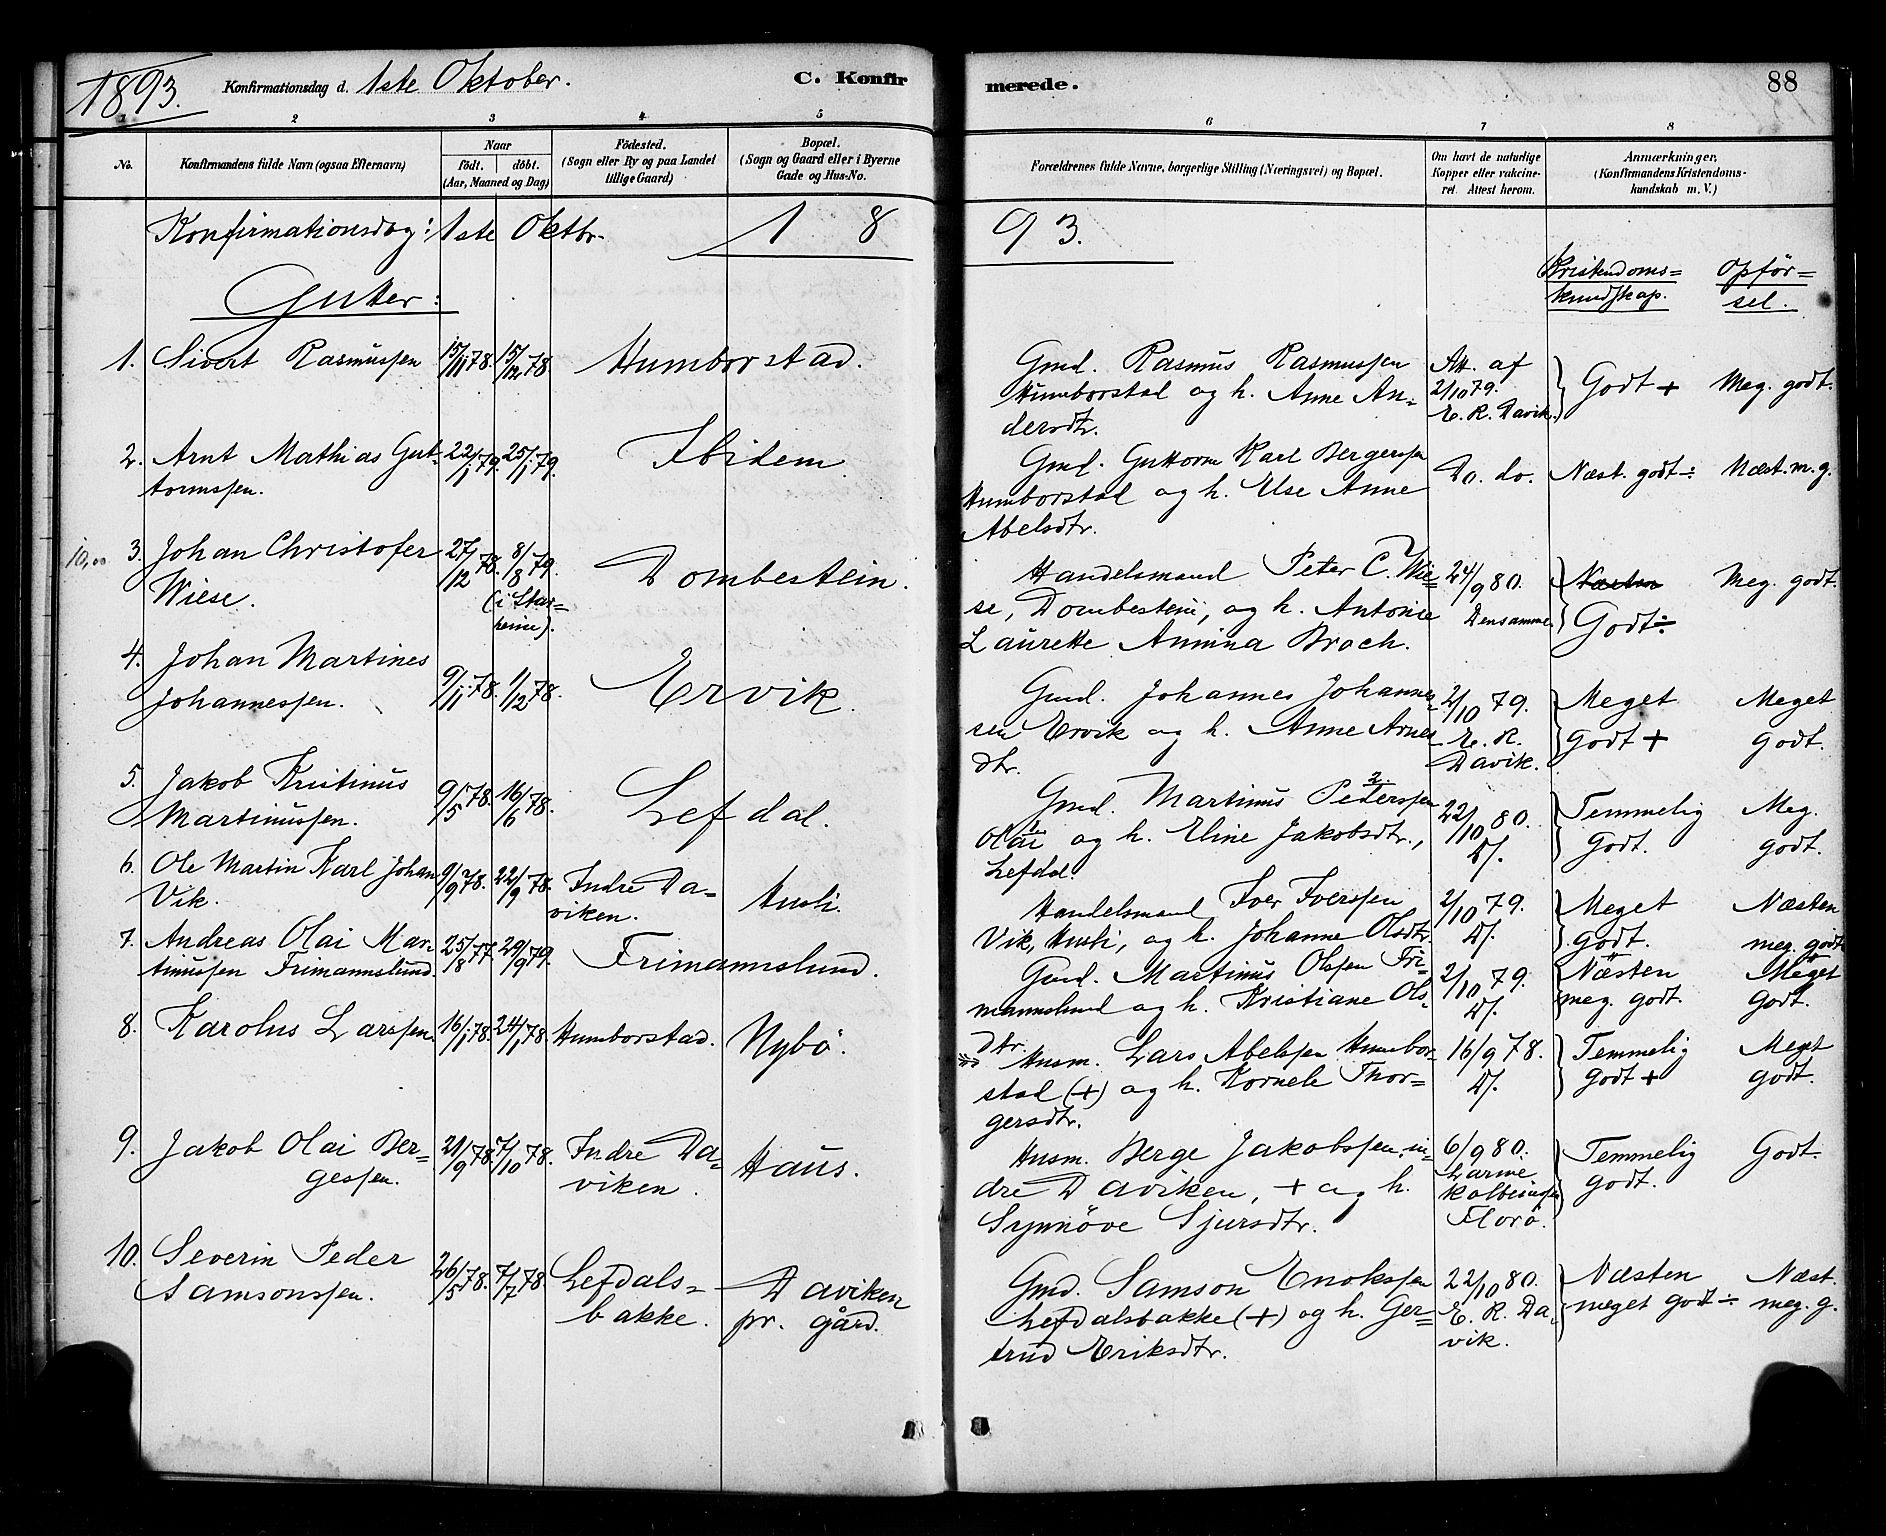 1893. Konfirmationsdag d. 1ste Oktober. C. Konfir merede. 88
1 2 3 4 5 6 7 8
No.
Konfirmandens fulde Navn (ogsaa Efternavn)
Naar
födt. döbt.
(Aar, Maaned og Dag)
Födested.
(Sogn eller By og paa Landet
tillige Gaard)
Bopæl.
(Sogn og Gaard eller i Byerne
Gade og Hus-No.
Forældrenes fulde Navne, borgerlige Stilling (Næringsvei) og Bopæl.
Om havt de naturlige
Kopper eller vakcine-
ret. Attest herom.
Anmærkninger,
(Konfirmandens Kristendoms-
kundskab m. V.)
Konfirmationsdag: 1ste Oktbr. 18 93.
Gutter:
Kristendoms=
kundskap.
Opför=
sel.
1. Sivert Rasmussen
15/11 78. 15/12 78
Humborstad.
Gmd. Rasmus Rasmussen
Humborstad og h. Anne An-
dersdtr.
Att. af
2/10 79.
E. R. Davik.
Godt + Meg. godt.
2. Arnt Mathias Gut-
tormssen.
22/1 79. 25/1 79.
Ibidem
Gmd. Guttorm Karl Bergersen
Humborstad og h. Else Anne
Abelsdtr.
Do. do.
Næst. godt ÷ Næst. m. g.
10,00 3. Johan Christofer
Wiese.
27/12 78. 8/8 79.
(i Star=
heim).
Dombestein.
Handelsmand Peter C. Wie=
se, Dombestein, og h. Antonie
Laurette Annina Broch.
24/9 80.
Densamme.
Næsten
Godt ÷
Meg. godt.
4. Johan Martines
Johannessen.
9/11 78. 1/12 78.
Ervik.
Gmd. Johannes Johannes-
sen Ervik og h. Anne Arnes
dtr.
2/10 79.
E. R.
Davik.
Meget
godt +
Meget
godt.
5. Jakob Kristinus
Martinussen.
9/5 78. 16/6 78.
Lefdal.
Gmd. Martinus Peterssen 2.
Olai 1. og h. Eline Jakobsdtr.,
Lefdal.
22/10 80.
D/.
Temmelig
godt.
Meg.
godt.
6. Ole Martin Karl Johan
Vik.
9/9 78. 22/9 78.
Indre Da-
viken.
Husli.
Handelsmand Iver Iverssen
Vik, Husli, og h. Johanne Olsdtr.
2/10 79.
D/.
Meget
godt.
Næsten
meg. godt
7. Andreas Olai Mar-
tinussen Frimannslund.
25/8 77. 29/9 79.
Frimannslund.
Gmd. Martinus Olssen Fri-
mannslund og h. Kristiane Ols-
dtr.
2/10 79.
D/.
Næsten
meg. godt.
Meget
godt.
8. Karolus Larssen.
16/1 78. 24/1 78.
Humborstad. Nybö.
Husm. Lars Abelssen Humbor-
stad (+) og h. Kornele Thor=
gersdtr.
16/9 78.
D/.
Temmelig
godt +
Meget
godt.
9. Jakob Olai Ber-
gessen.
21/9 78. 7/10 78.
Indre Da-
viken.
Haus.
Husm. Berge Jakobssen, in-
dre Daviken, + og h.
Synnöve Sjursdtr.
6/9 80.
Florö.
Temmelig
godt.
Godt.
10. Severin Peder
Samsonssen.
26/5 78. 7/7 78
Lefdals=
bakke.
Daviken
pr. gård.
Gmd. Samson Enokssen
Lefdalsbakke (+) og h. Ger=
trud Eriksdtr.
22/10 80.
E. R. Da-
vik.
Næsten
meget godt ÷
Næst.
meg. g.